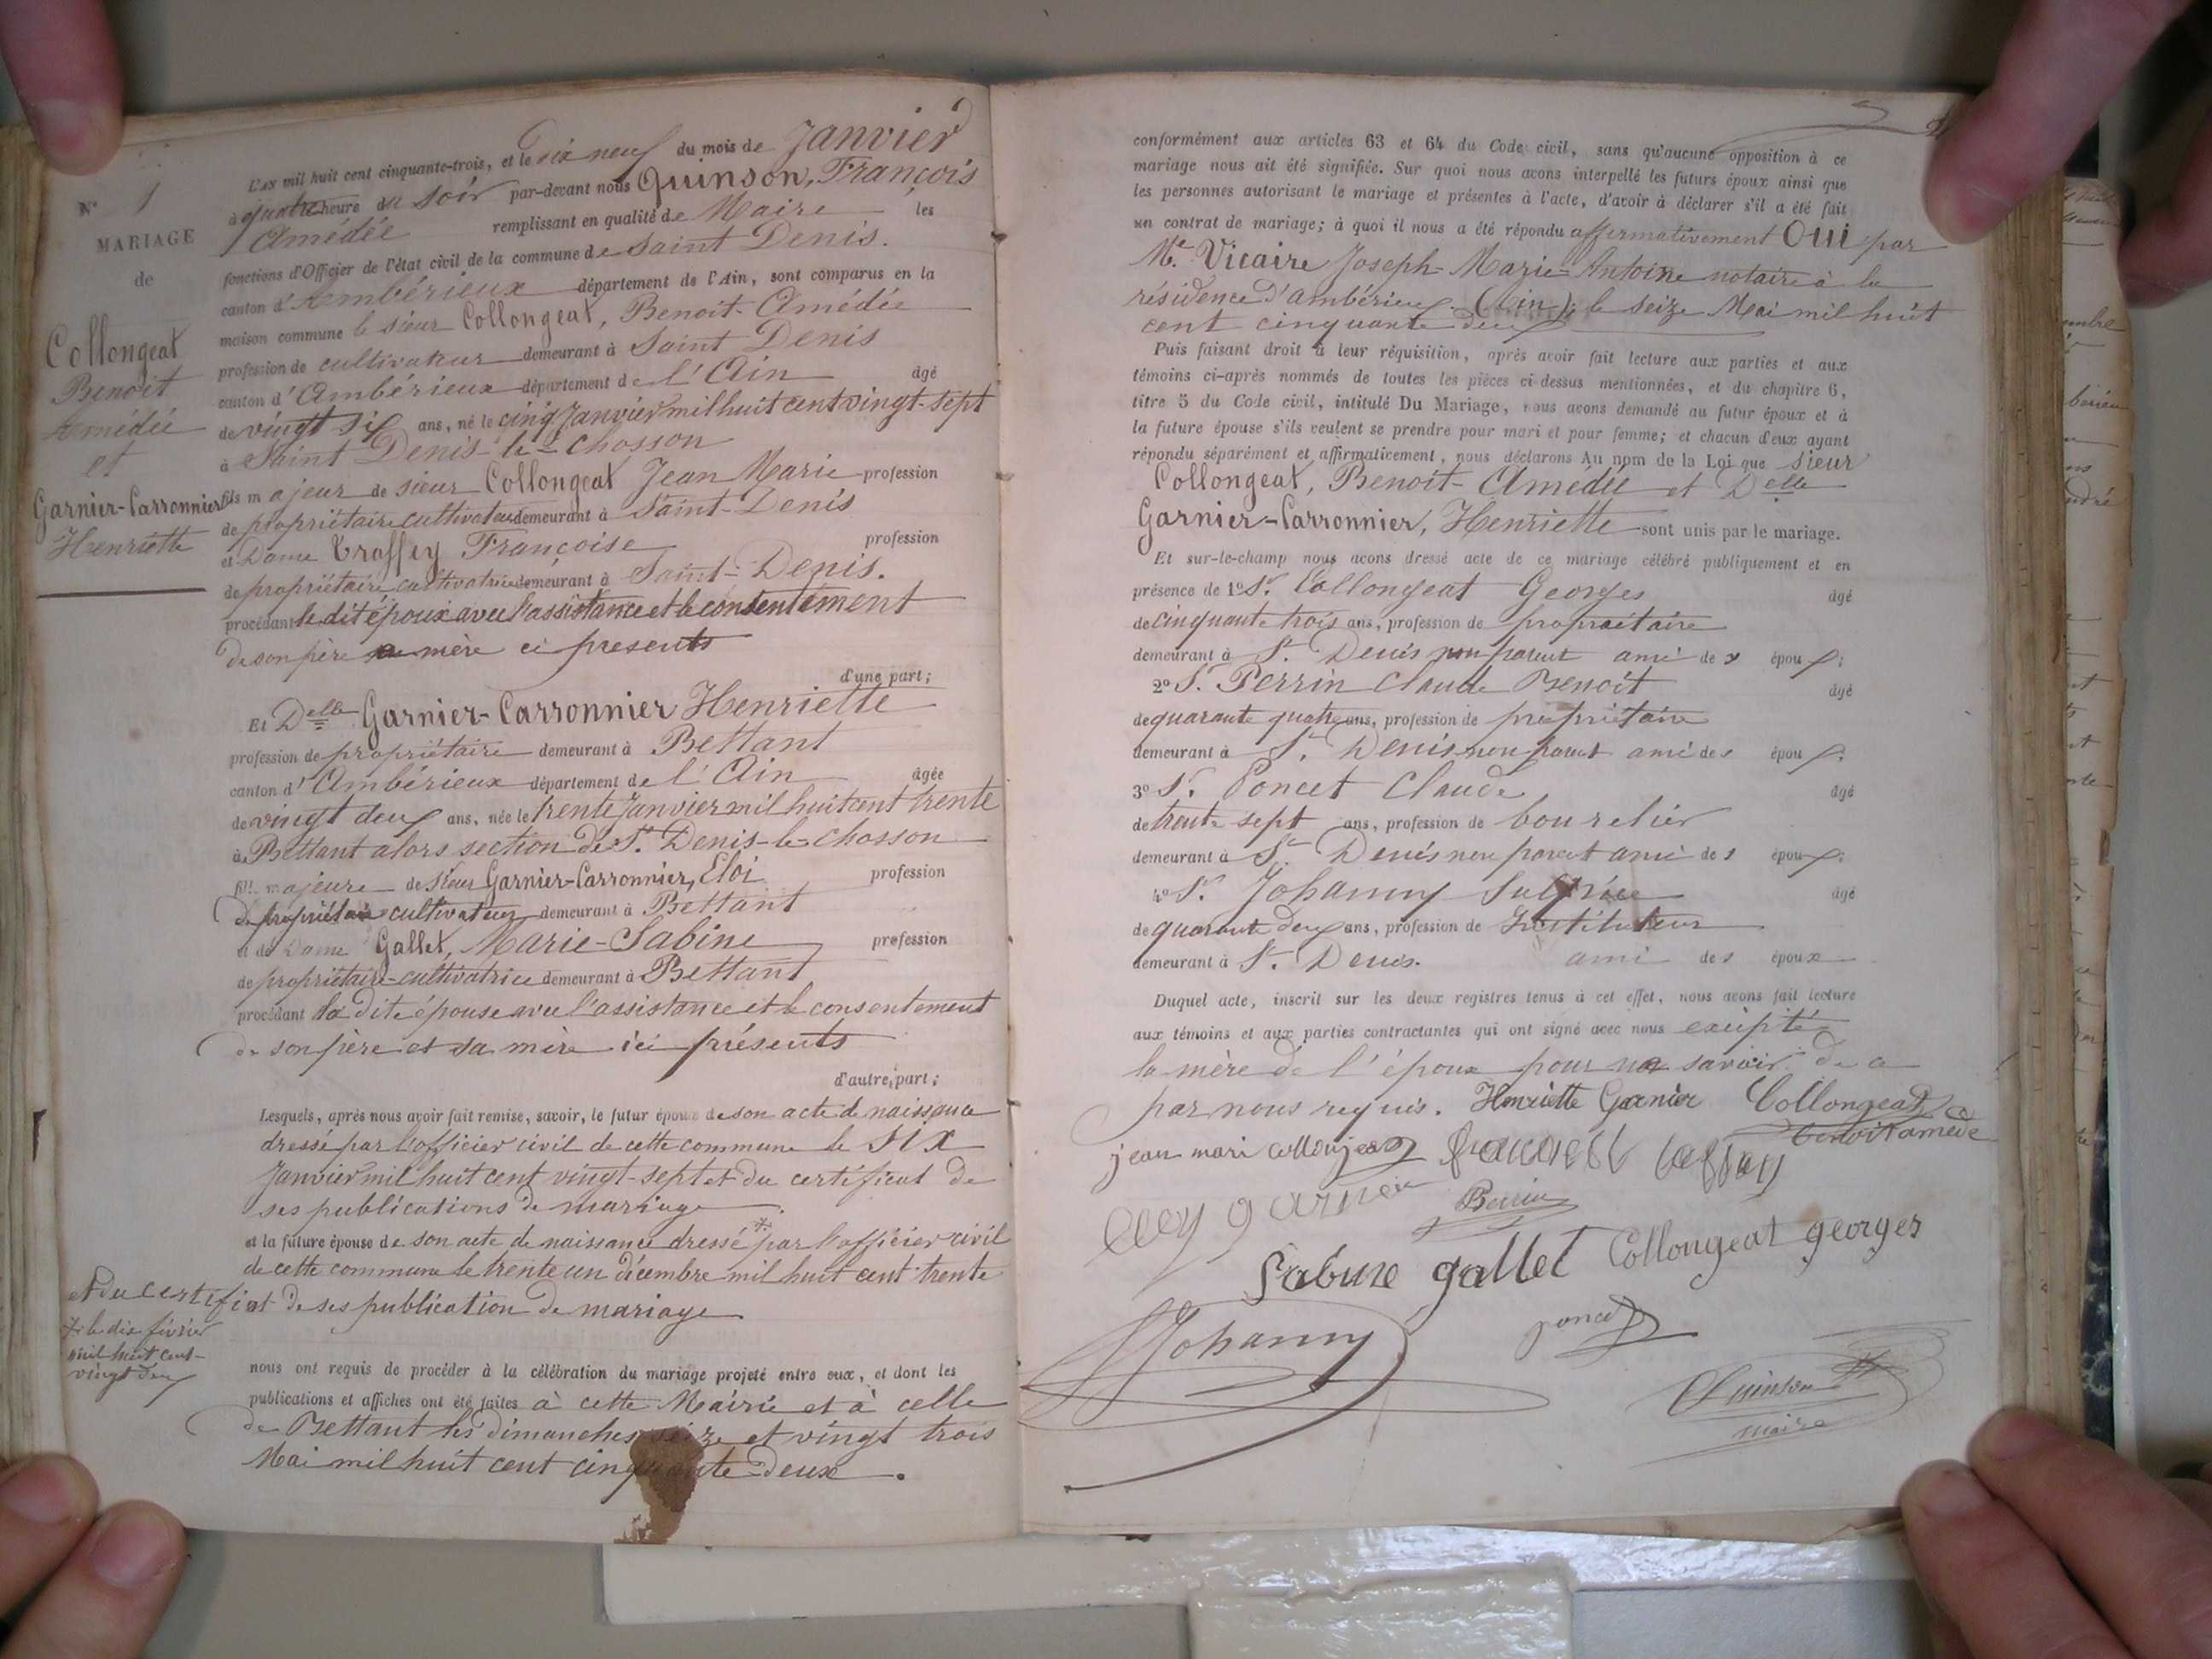 N° 1
MARIAGE
de
Collongeat
Benoit
Amédée
et
Garnier-Carronnier
Henriette
L'AN mil huit cent cinquante-trois, et le dix neuf du mois de Janvier
à quatre heure du soir par-devant nous Quinson, François
Amédée remplissant en qualité de Maire les
fonctions d'Officier de l'état civil de la commune de Saint Denis.
canton d'Ambérieux département de l'Ain, sont comparus en la
maison commune le sieur Collongeat, Benoit-Amédée
profession de cultivateur demeurant à Saint Denis
canton d'Ambérieux département de l'Ain âgé
de vingt six ans, né le cinq Janvier mil huit cent vingt-sept
à Saint Denis-le-Chosson
fils majeur de sieur Collongeat Jean Marie profession
de propriétaire cultivateur demeurant à Saint-Denis
et Dame Traffey Françoise profession
de propriétaire cultivatrice demeurant à Saint-Denis.
procédant le dit époux avec l'assistance et le consentement
de son père mère ci presents
d'une part;
Et Delle Garnier-Carronnier Henriette
profession de propriétaire demeurant à Bettant
canton d'Ambérieux département de l'Ain âgée
de vingt deux ans, née le trente Janvier mil huit cent trente
à Bettant alors section de St. Denis-le-Chosson
fille majeure de sieur Garnier-Carronnier, Eloi profession
de propriétaire cultivateur demeurant à Bettant
et de Dame Gallet, Marie-Sabine profession
de propriétaire-cultivatrice demeurant à Bettant
procédant la dite épouse avec l'assistance et le consentement
de son père et sa mère ici présents
d'autre part;
Lesquels, après nous avoir fait remise, savoir, le futur époux de son acte de naissance
dressé par l'officier civil de cette commune le six
Janvier mil huit cent vingt-sept et du certificat de
ses publications de mariage.
et la future épouse de son acte de naissance dressé * par l'officier civil
de cette commune le trente un décembre mil huit cent trente
et du certificat de ses publication de mariage
* le dix février
mil huit cent
vingt deux
nous ont requis de procéder à la célébration du mariage projeté entre eux, et dont les
publications et affiches ont été faites à cette Mairie et à celle
de Bettant les dimanches seize et vingt trois
Mai mil huit cent cinquante-deux.
conformément aux articles 63 et 64 du Code civil, sans qu'aucune opposition à ce
mariage nous ait été signifiée. Sur quoi nous avons interpellé les futurs époux ainsi que
les personnes autorisant le mariage et présentes à l'acte, d'avoir à déclarer s'il a été fait
un contrat de mariage; à quoi il nous a été répondu affirmativement Oui par
Me. Vicaire Joseph-Marie-Antoine notaire à la
résidence d'Ambérieux (Ain); le seize Mai mil huit
cent cinquante deux
Puis faisant droit à leur réquisition, après avoir fait lecture aux parties et aux
témoins ci-après nommés de toutes les pièces ci-dessus mentionnées, et du chapitre 6,
titre 5 du Code civil, intitulé Du Mariage, nous avons demandé au futur époux et à
la future épouse s'ils veulent se prendre pour mari et pour femme; et chacun d'eux ayant
répondu séparément et affirmativement, nous déclarons Au nom de la Loi que sieur
Collongeat, Benoit-Amédée et Delle
Garnier-Carronnier, Henriette sont unis par le mariage.
Et sur-le-champ nous avons dressé acte de ce mariage célébré publiquement et en
présence de 1° Sr. Collongeat Georges âgé
de cinquante trois ans, profession de propriétaire
demeurant à St. Denis non parent ami des époux;
2° Sr. Perrin Claude Benoit âgé
de quarante quatre ans, profession de propriétaire
demeurant à St. Denis non parent ami des époux;
3° Sr. Poncet Claude âgé
de trente sept ans, profession de bourelier
demeurant à St. Denis non parent ami des époux;
4° Sr. Johanny Sulpice âgé
de quarante deux ans, profession de Instituteur
demeurant à St. Denis. ami des époux
Duquel acte, inscrit sur les deux registres tenus à cet effet, nous avons fait lecture
aux témoins et aux parties contractantes qui ont signé avec nous excepté
la mère de l'époux pour ne savoir de ce
par nous requis. Henriette Garnier Collongeat
benoit amede
jean mari collonjeat
garnier
Perrin
Sabine gallet Collongeat georges
Johanny poncet
Quinson
maire